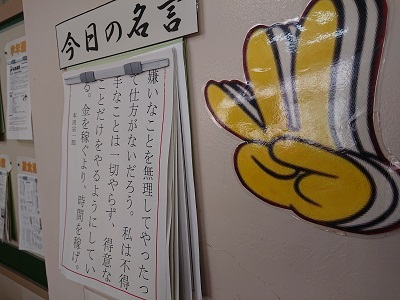 今日の名言
嫌いなことを無理してやったっ
て仕方がないだろう。私は不得
手なことは一切やらず、得意な
ことだけをやるようにしてい
る。金を稼ぐより、時間を稼げ。
本田宗一郎